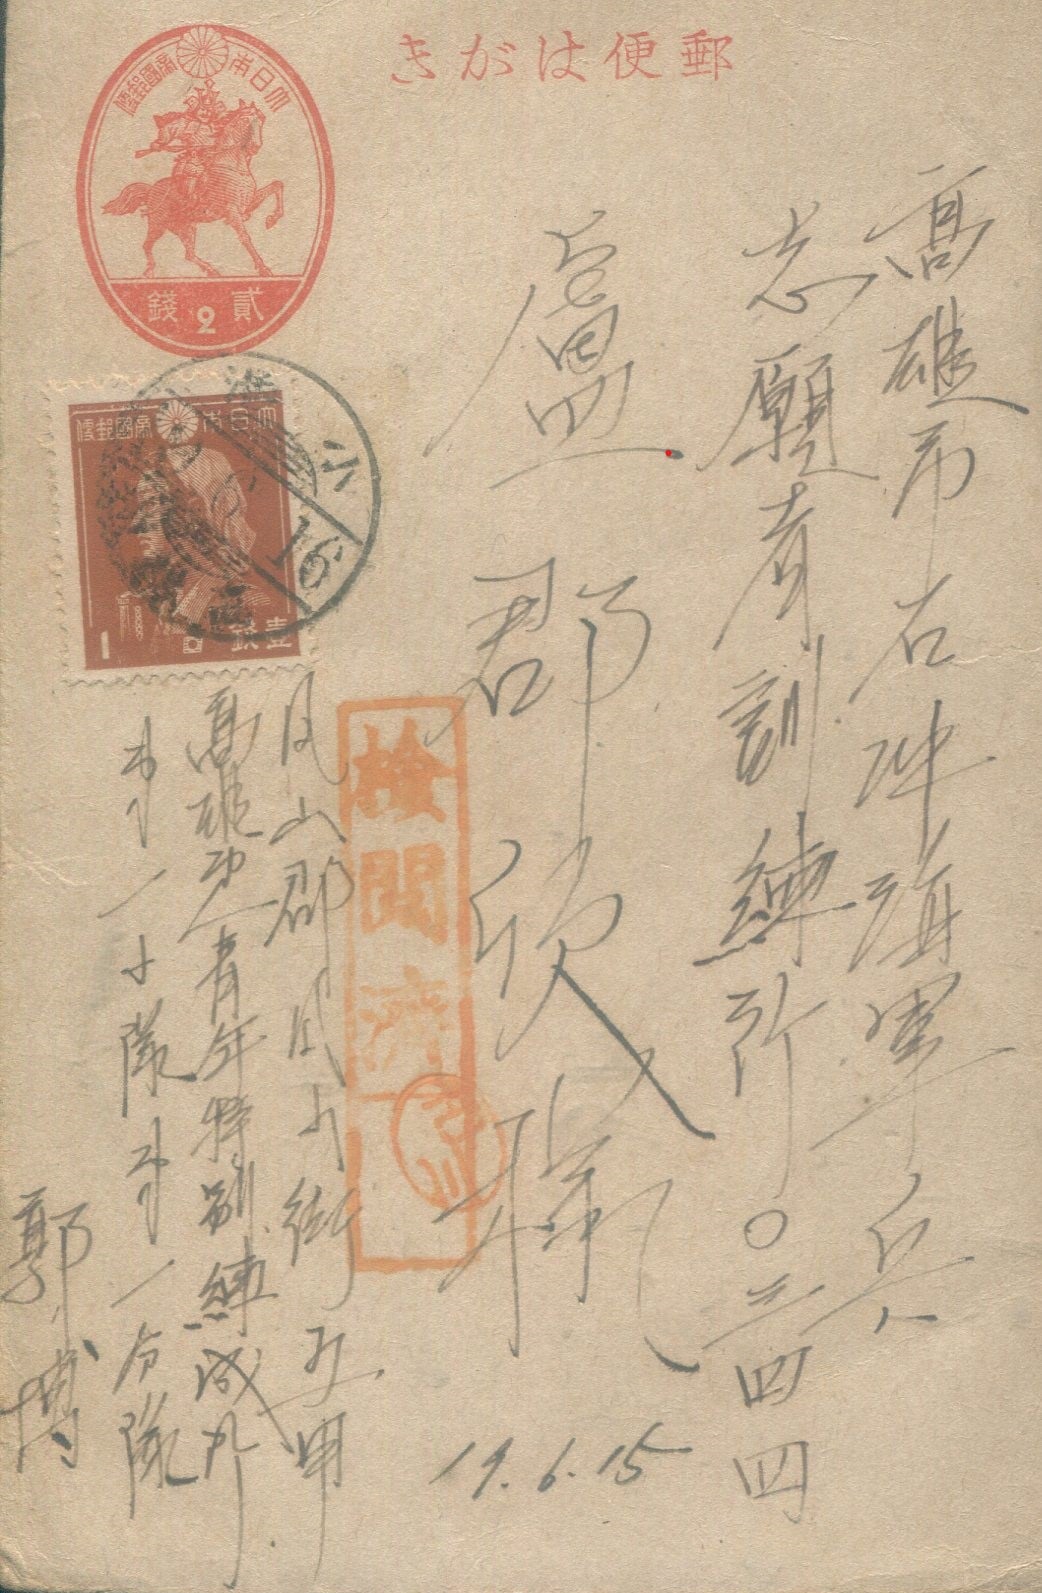 郵便はがき
大日本帝國郵便
貳2錢
大日本帝國郵便
壹錢
1
小港
16
高雄市右冲海軍兵
志願者訓練所〇三四四
盧郡欽様
19.6.15
検閲済
鳳山郡鳳山街五甲
高雄第二青年特別錬成所
第一小隊第一分隊
郭博